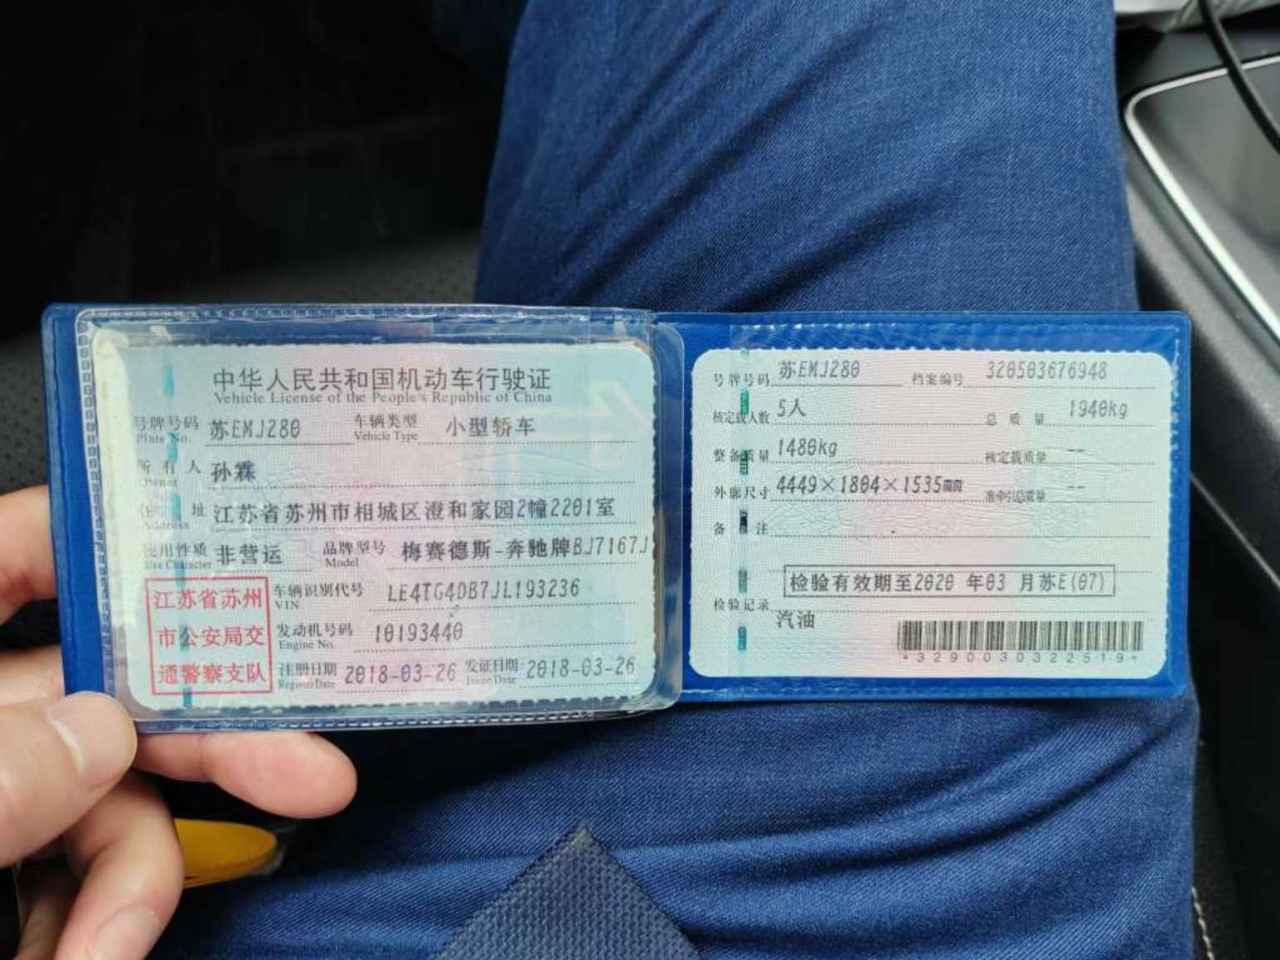 中华人民共和国机动车行驶证
Vehicle License of the People's Republic of China
号牌号码 苏EMJ280 车辆类型 小型轿车
Plate No. Vehicle Type
所有人 孙霖
Owner
住址 江苏省苏州市相城区澄和家园2幢2201室
Address
使用性质 非营运 品牌型号 梅赛德斯-奔驰牌BJ7167J
Use Character Model
江苏省苏州
市公安局交
通警察支队
车辆识别代号 LE4TG4DB7JL193236
VIN
发动机号码 10193440
Engine No.
注册日期 2018-03-26 发证日期 2018-03-26
Register Date Issue Date
号牌号码 苏EMJ280 档案编号 320503676948
核定载人数 5人 总质量 1940kg
整备质量 1480kg 核定载质量 --
外廓尺寸 4449×1804×1535mm 准牵引总质量 --
备注
检验有效期至2020年03月苏E(07)
检验记录
汽油
*3290030322519*